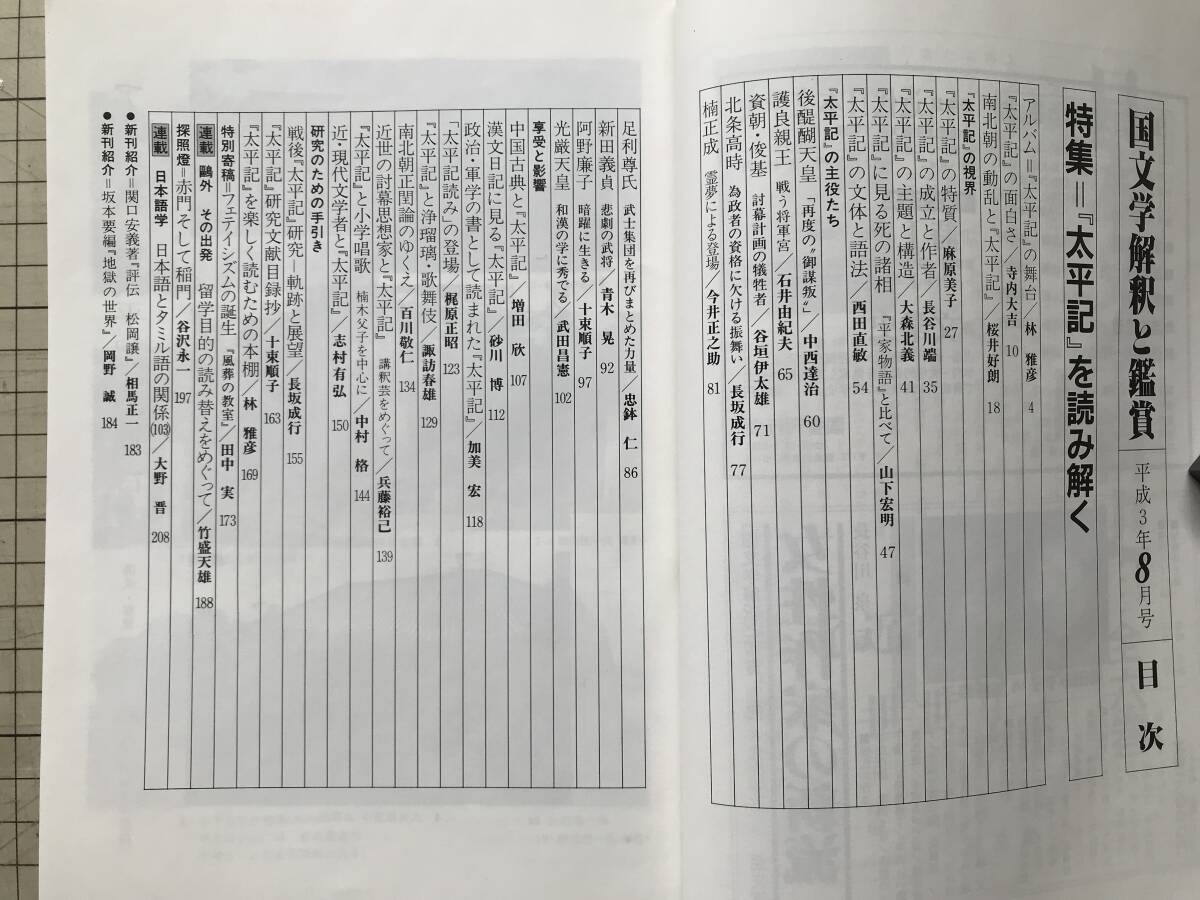 国文学解釈と鑑賞 平成3年8月号 目次
特集=『太平記』を読み解く
アルバム=『太平記』の舞台/林 雅彦 4
『太平記』の面白さ/寺内大吉 10
南北朝の動乱と『太平記』/桜井好朗 18
『太平記』の視界
『太平記』の特質/麻原美子 27
『太平記』の成立と作者/長谷川端 35
『太平記』の主題と構造/大森北義 41
『太平記』に見る死の諸相 『平家物語』と比べて/山下宏明 47
『太平記』の文体と語法/西田直敏 54
『太平記』の主役たち
後醍醐天皇 「再度の〝御謀叛〟」/中西達治 60
護良親王 戦う将軍宮/石井由紀夫 65
資朝・俊基 討幕計画の犠牲者/谷垣伊太雄 71
北条高時 為政者の資格に欠ける振舞い/長坂成行 77
楠正成 霊夢による登場/今井正之助 81
足利尊氏 武士集団を再びまとめた力量/忠鉢 仁 86
新田義貞 悲劇の武将/青木 晃 92
阿野廉子 暗躍に生きる/十束順子 97
光厳天皇 和漢の学に秀でる/武田昌憲 102
享受と影響
中国古典と『太平記』/増田 欣 107
漢文日記に見る『太平記』/砂川 博 112
政治・軍学の書として読まれた『太平記』/加美 宏 118
「太平記読み」の登場/梶原正昭 123
『太平記』と浄瑠璃・歌舞伎/諏訪春雄 129
南北朝正閏論のゆくえ/百川敬仁 134
近世の討幕思想家と『太平記』 講釈芸をめぐって/兵藤裕己 139
『太平記』と小学唱歌 楠木父子を中心に/中村 格 144
近・現代文学者と『太平記』/志村有弘 150
研究のための手引き
戦後『太平記』研究 軌跡と展望/長坂成行 155
『太平記』研究文献目録抄/十束順子 163
『太平記』を楽しく読むための本棚/林 雅彦 169
特別寄稿=フェティシズムの誕生 『風葬の教室』/田中 実 173
連載 鷗外 その出発 留学目的の読み替えをめぐって/竹盛天雄 188
探照燈=赤門そして稲門/谷沢永一 197
連載 日本語学 日本語とタミル語の関係(103)/大野 晋 208
●新刊紹介=関口安義著『評伝 松岡譲』/相馬正一 183
●新刊紹介=坂本要編『地獄の世界』/岡野 誠 184